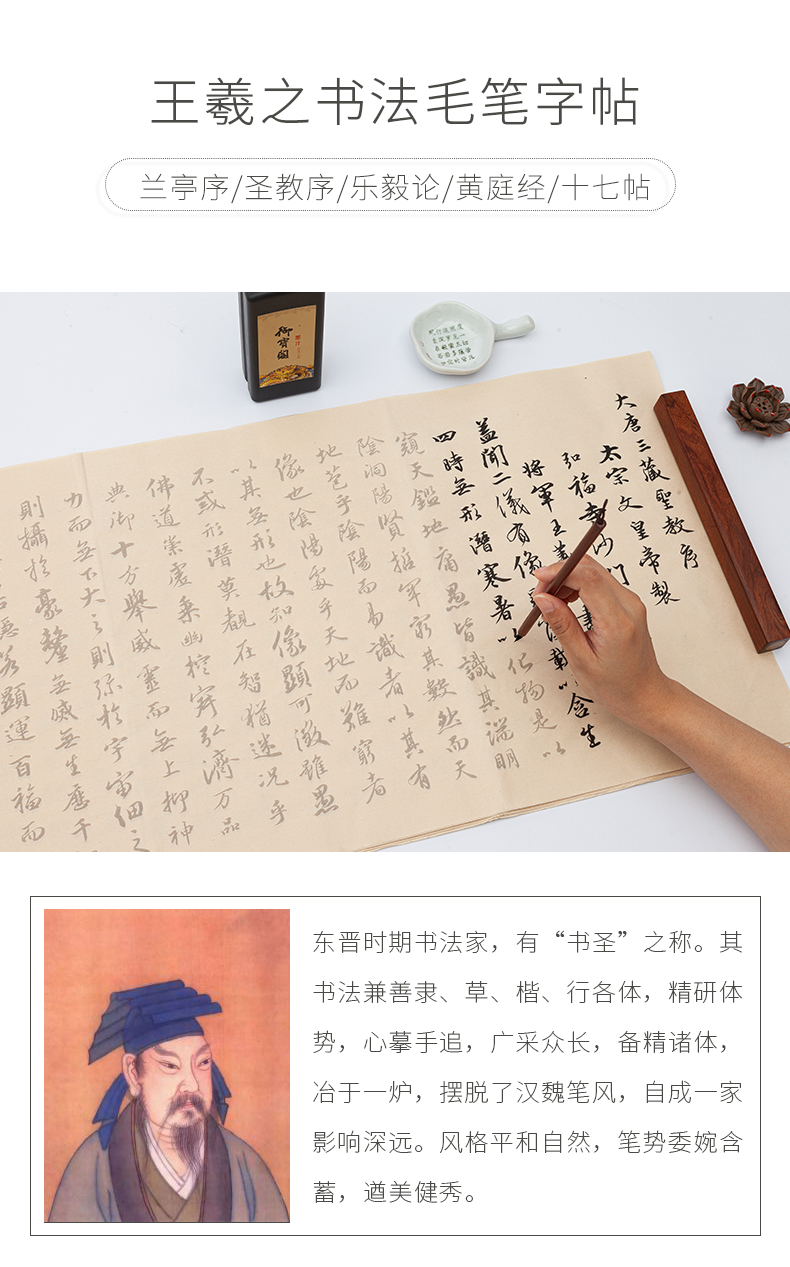 王羲之书法毛笔字帖
兰亭序/圣教序/乐毅论/黄庭经/十七帖
御寶閣
大唐三藏聖教序
太宗文皇帝製
弘福寺沙門 書
將軍王羲
蓋聞二儀有像 載以含生
四時無形潛寒暑以化物是以
窺天鑑地庸愚皆識其端明
陰洞陽賢哲罕窮其數然而天
地苞乎陰陽而易識者以其有
像也陰陽處乎天地而難窮者
以其無形也故知像顯可徵雖愚
不惑形潛莫覩在智猶迷況乎
佛道崇虛乘幽控寂弘濟万品
典御十方舉威靈而無上抑神
力而無下大之則彌於宇宙細之
則攝於豪釐無滅無生歷千
隱若顯運百福而
东晋时期书法家，有“书圣”之称。其
书法兼善隶、草、楷、行各体，精研体
势，心摹手追，广采众长，备精诸体，
冶于一炉，摆脱了汉魏笔风，自成一家
影响深远。风格平和自然，笔势委婉含
蓄，遒美健秀。